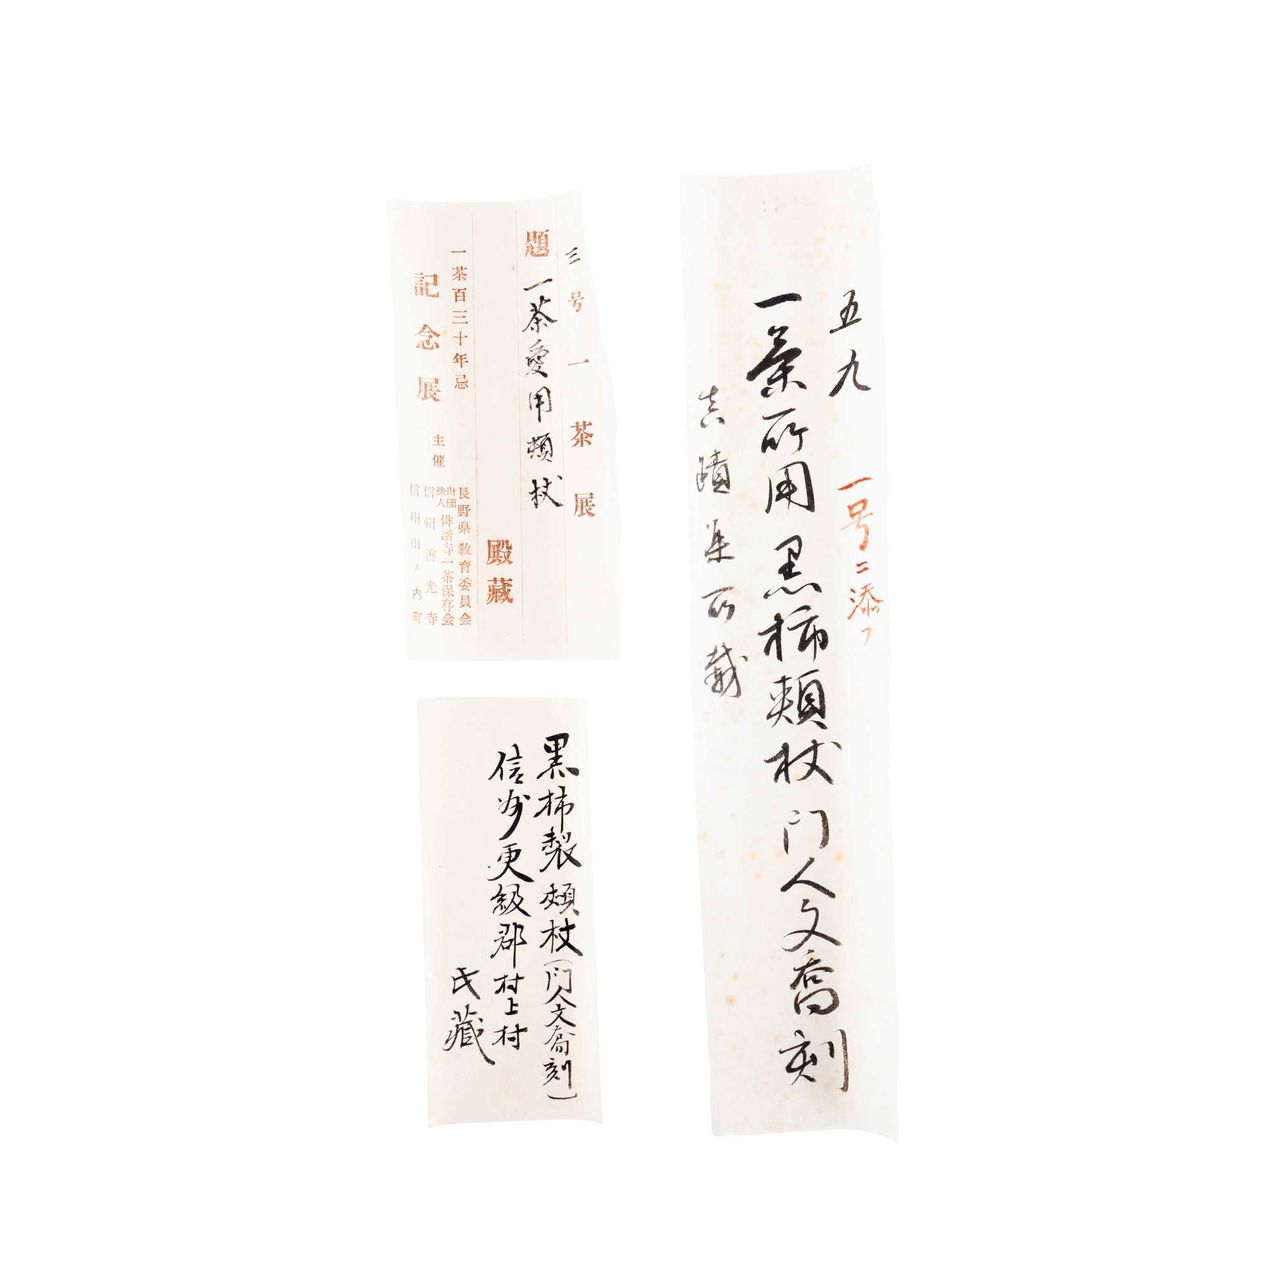 五九 一号ニ添フ
一茶所用黒柿頬杖門人文喬刻
真蹟集所載
三号 一茶展
題 一茶愛用頬杖
殿蔵
一茶百三十年忌
記念展
主催
長野県教育委員会
財団法人 俳諧寺一茶保存会
信州善光寺
信州山ノ内町
黒柿製頬杖(門人文喬刻)
信州更級郡村上村
氏蔵